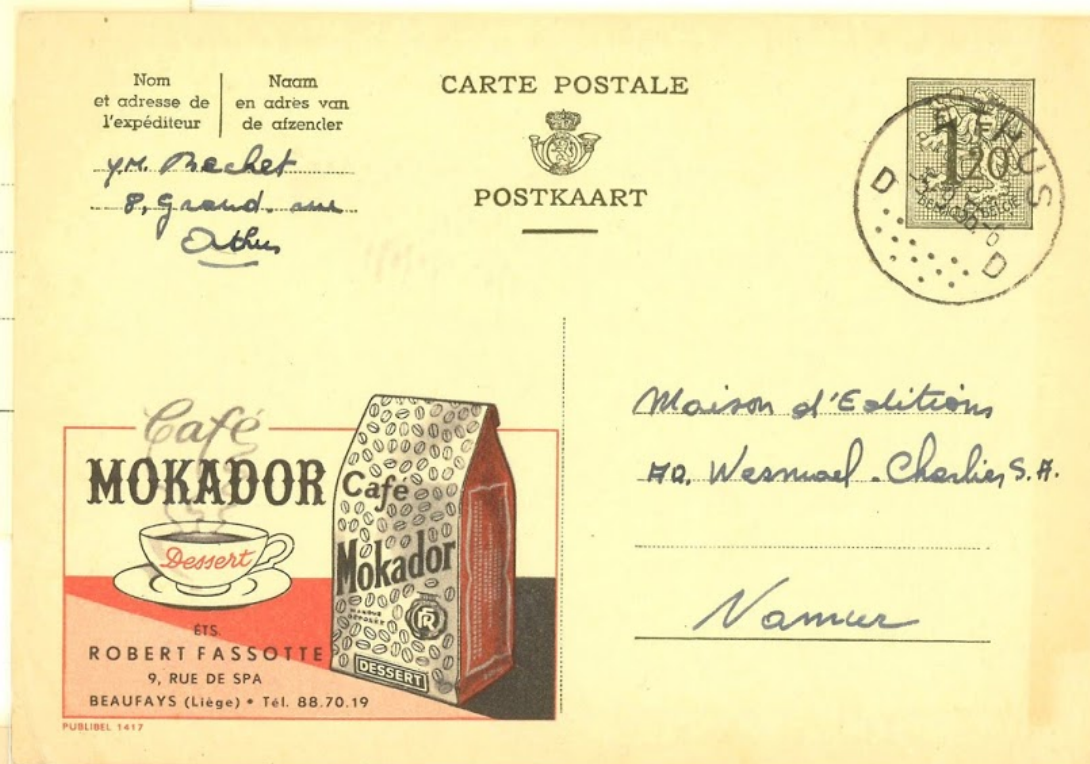 Nom
et adresse de
l'expéditeur
Naam
en adres van
de afzender
CARTE POSTALE
POSTKAART
8, Grand rue
Athus
1F20
BELGIQUE BELGIË
ATHUS
D D
Maison d'Editions
AD. Wesmael-Charlier S.A.
Namur
Café
MOKADOR
Dessert
Café
Mokador
MARQUE
DÉPOSÉE
DESSERT
ÉTS.
ROBERT FASSOTTE
9, RUE DE SPA
BEAUFAYS (Liège) • Tél. 88.70.19
PUBLIBEL 1417